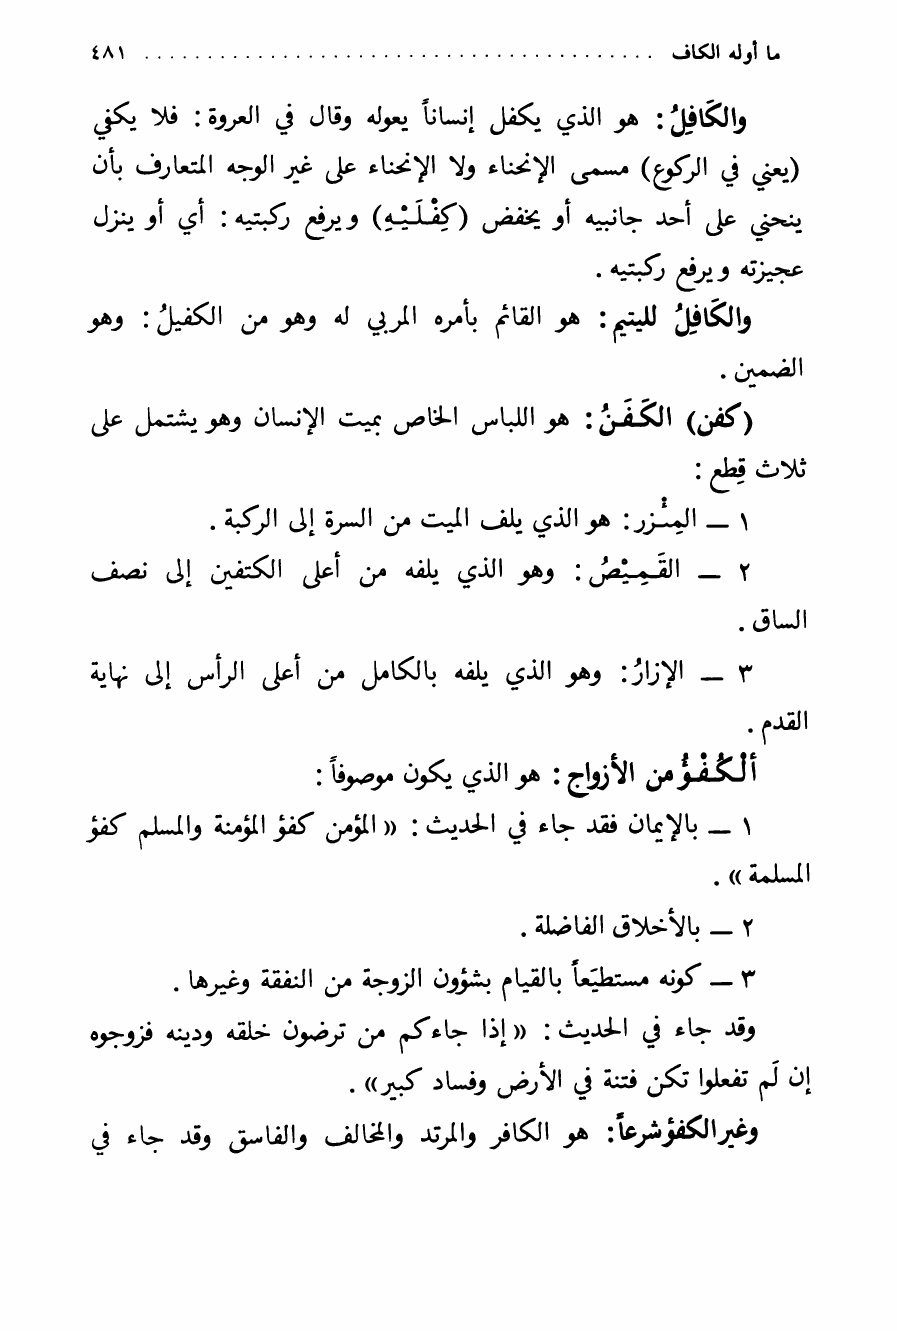 ما أوله الكاف ........................................ ٤٨١
والكَافِلُ : هو الذي يكفل إنساناً يعوله وقال في العروة : فلا يكفي
(يعني في الركوع) مسمى الإنحناء ولا الإنحناء على غير الوجه المتعارف بأن
ينحني على أحد جانبيه أو يخفض (كِفْلَـيْـهِ) ويرفع ركبتيه : أي أو ينزل
عجيزته ويرفع ركبتيه .
والكَافِلُ لليتيم : هو القائم بأمره المربي له وهو من الكفيلُ : وهو
الضمين .
(كفن) الكَـفَـنُ : هو اللباس الخاص بميت الإنسان وهو يشتمل على
ثلاث قِطع :
١ — المِئْـزر : هو الذي يلف الميت من السرة إلى الركبة .
٢ — القَـمِـيْـصُ : وهو الذي يلفه من أعلى الكتفين إلى نصف
الساق .
٣ — الإزارُ : وهو الذي يلفه بالكامل من أعلى الرأس إلى نهاية
القدم .
ألْكُـفْـؤُ من الأزواج : هو الذي يكون موصوفاً :
١ — بالإيمان فقد جاء في الحديث : « المؤمن كفؤ المؤمنة والمسلم كفؤ
المسلمة » .
٢ — بالأخلاق الفاضلة .
٣ — كونه مستطيَعاً بالقيام بشؤون الزوجة من النفقة وغيرها .
وقد جاء في الحديث : « إذا جاءكم من ترضون خلقه ودينه فزوجوه
إن لَم تفعلوا تكن فتنة في الأرض وفساد كبير» .
وغير الكفؤ شرعاً : هو الكافر والمرتد والمخالف والفاسق وقد جاء في